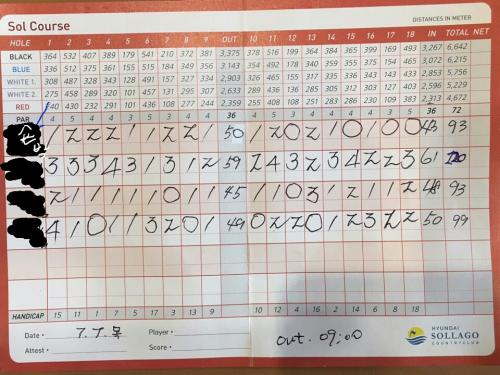 Sol Course
DISTANCES IN METER
HOLE 1 2 3 4 5 6 7 8 9 OUT 10 11 12 13 14 15 16 17 18 IN TOTAL NET
BLACK 364 532 407 389 179 541 210 372 381 3,375 378 516 199 364 384 365 399 169 493 3,267 6,642
BLUE 336 512 375 361 155 515 184 349 356 3,143 354 492 178 340 359 355 375 154 465 3,072 6,215
WHITE 1 308 487 328 343 128 491 157 327 334 2,903 326 465 157 311 334 337 345 135 443 2,853 5,756
WHITE 2 275 458 289 320 101 457 131 295 307 2,633 289 436 136 285 305 302 311 103 429 2,596 5,229
RED 240 430 232 291 101 436 108 277 244 2,359 255 408 108 251 283 286 230 109 383 2,313 4,672
PAR 4 5 4 4 3 5 3 4 4 36 4 5 3 4 4 4 4 3 5 36 72
1 2 2 2 1 1 2 2 1 50 1 2 0 2 1 0 1 0 0 43 93
3 3 3 4 3 1 3 1 2 59 2 4 3 2 3 4 2 2 3 61
2 1 1 1 1 1 0 1 1 45 1 1 0 3 1 2 1 1 2 48 93
4 1 0 1 1 3 2 0 1 49 0 2 2 0 1 2 3 2 2 50 99
HANDICAP 15 11 1 7 5 17 3 13 9 10 12 4 6 16 2 14 8 18
Date • 7. 7. 목 Player •
Attest • Score •
out. 09:00
HYUNDAI
SOLLAGO
COUNTRYCLUB